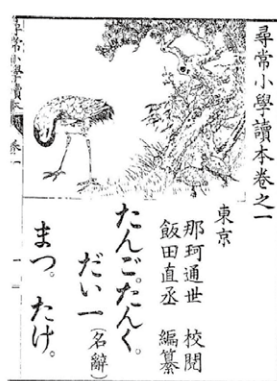 尋常小學讀本卷之一
東京
那珂通世 校閲
飯田直丞 編纂
たんご。たんく。
だい一(名辭)
まつ。たけ。
尋常小學讀本 卷一
一